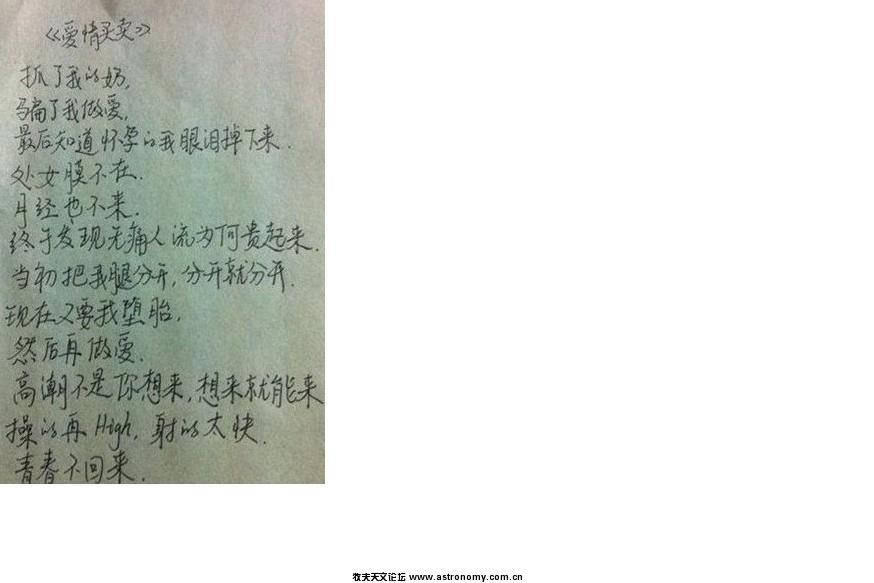 《爱情买卖》
抓了我的奶,
骗了我做爱,
最后知道怀孕的我眼泪掉下来.
处女膜不在.
月经也不来.
终于发现无痛人流为何贵起来.
当初把我腿分开,分开就分开.
现在又要我堕胎,
然后再做爱.
高潮不是你想来,想来就能来
操的再High,射的太快.
青春不回来.
牧夫天文论坛 www.astronomy.com.cn